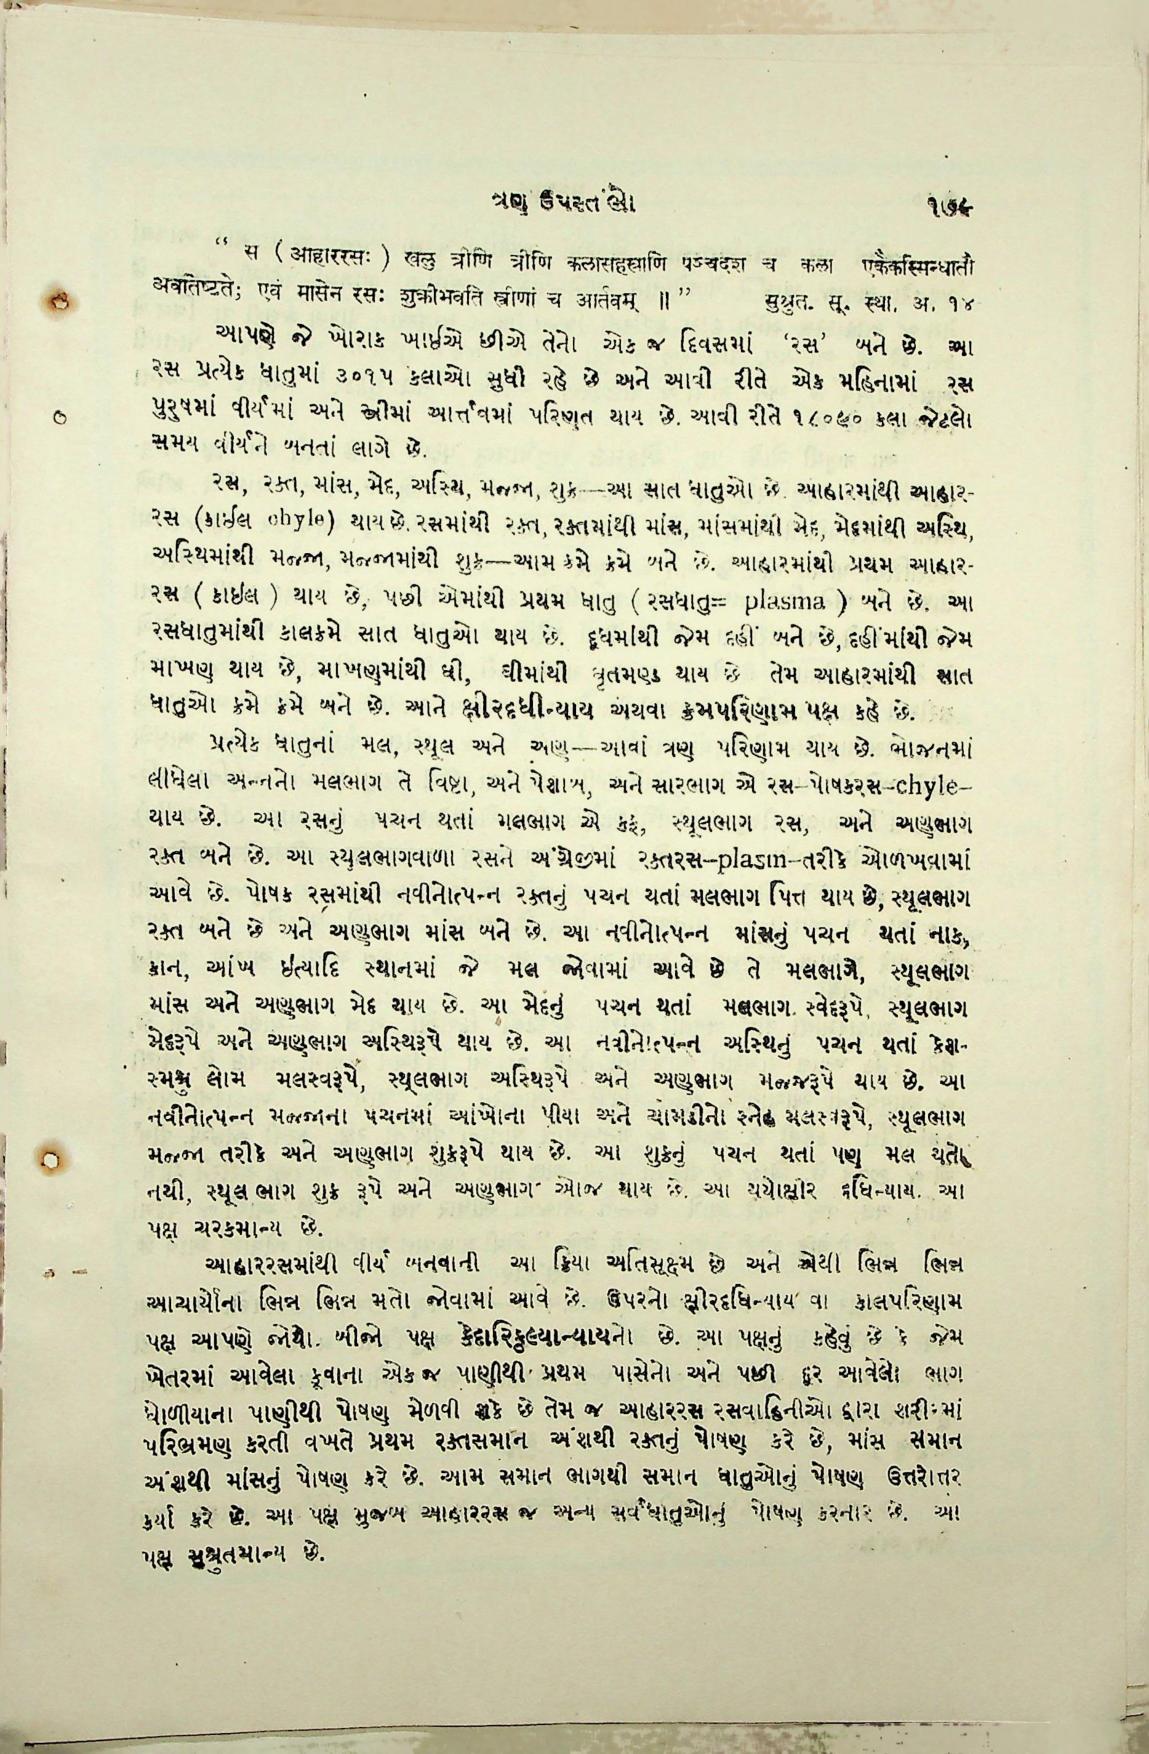 ત્રણ ઉપસ્તંભો ૧૭૯
“ स ( आहाररसः ) खलु त्रीणि त्रीणि कलासहस्राणि पञ्चदश च कला एकैकस्मिन्धातौ
अवतिष्टते; एवं मासेन रसः शुक्रीभवति स्त्रीणां च आर्तवम् ॥ ” सुश्रुत. सू. स्था. अ. १४
આપણે જે ખોરાક ખાઈએ છીએ તેનો એક જ દિવસમાં ‘રસ’ બને છે. આ
રસ પ્રત્યેક ધાતુમાં ૩૦૧૫ કલાઓ સુધી રહે છે અને આવી રીતે એક મહિનામાં રસ
પુરુષમાં વીર્યમાં અને સ્ત્રીમાં આર્ત્તવમાં પરિણત થાય છે. આવી રીતે ૧૮૦૯૦ કલા જેટલો
સમય વીર્યને બનતાં લાગે છે.
રસ, રક્ત, માંસ, મેદ, અસ્થિ, મજ્જા, શુક્ર—આ સાત ધાતુઓ છે. આહારમાંથી આહાર-
રસ (કાઈલ chyle) થાય છે. રસમાંથી રક્ત, રક્તમાંથી માંસ, માંસમાંથી મેદ, મેદમાંથી અસ્થિ,
અસ્થિમાંથી મજ્જા, મજ્જામાંથી શુક્ર—આમ ક્રમે ક્રમે બને છે. આહારમાંથી પ્રથમ આહાર-
રસ ( કાઈલ ) થાય છે, પછી એમાંથી પ્રથમ ધાતુ ( રસધાતુ= plasma ) બને છે. આ
રસધાતુમાંથી કાલક્રમે સાત ધાતુઓ થાય છે. દૂધમાંથી જેમ દહીં બને છે, દહીંમાંથી જેમ
માખણ થાય છે, માખણમાંથી ઘી, ઘીમાંથી ઘૃતમણ્ડ થાય છે તેમ આહારમાંથી સાત
ધાતુઓ ક્રમે ક્રમે બને છે. આને ક્ષીરદધીન્યાય અથવા ક્રમપરિણામ પક્ષ કહે છે.
પ્રત્યેક ધાતુનાં મલ, સ્થૂલ અને અણુ—આવાં ત્રણ પરિણામ થાય છે. ભોજનમાં
લીધેલા અન્નનો મલભાગ તે વિષ્ટા, અને પેશાબ, અને સારભાગ એ રસ–પોષકરસ–chyle–
થાય છે. આ રસનું પચન થતાં મલભાગ એ કફ, સ્થૂલભાગ રસ, અને અણુભાગ
રક્ત બને છે. આ સ્થૂલભાગવાળા રસને અંગ્રેજીમાં રક્તરસ–plasm–તરીકે ઓળખવામાં
આવે છે. પોષક રસમાંથી નવીનોત્પન્ન રક્તનું પચન થતાં મલભાગ પિત્ત થાય છે, સ્થૂલભાગ
રક્ત બને છે અને અણુભાગ માંસ બને છે. આ નવીનોત્પન્ન માંસનું પચન થતાં નાક,
કાન, આંખ ઇત્યાદિ સ્થાનમાં જે મલ જોવામાં આવે છે તે મલભાગે, સ્થૂલભાગ
માંસ અને અણુભાગ મેદ થાય છે. આ મેદનું પચન થતાં મલભાગ સ્વેદરૂપે, સ્થૂલભાગ
મેદરૂપે અને અણુભાગ અસ્થિરૂપે થાય છે. આ નવીનોત્પન્ન અસ્થિનું પચન થતાં કેશ-
સ્મશ્રુ લોમ મલસ્વરૂપે, સ્થૂલભાગ અસ્થિરૂપે અને અણુભાગ મજ્જારૂપે થાય છે. આ
નવીનોત્પન્ન મજ્જાના પચનમાં આંખોના પીયા અને ચામડીનો સ્નેહ મલસ્વરૂપે, સ્થૂલભાગ
મજ્જા તરીકે અને અણુભાગ શુક્રરૂપે થાય છે. આ શુક્રનું પચન થતાં પણ મલ થતો
નથી, સ્થૂલ ભાગ શુક્ર રૂપે અને અણુભાગ ઓજ થાય છે. આ થયો ક્ષીર દધિન્યાય. આ
પક્ષ ચરકમાન્ય છે.
આહારરસમાંથી વીર્ય બનવાની આ ક્રિયા અતિસૂક્ષ્મ છે અને એથી ભિન્ન ભિન્ન
આચાર્યોના ભિન્ન ભિન્ન મતો જોવામાં આવે છે. ઉપરનો ક્ષીરદધિન્યાય વા કાલપરિણામ
પક્ષ આપણે જોયો. બીજો પક્ષ કેદારિકુલ્યાન્યાયનો છે. આ પક્ષનું કહેવું છે કે જેમ
ખેતરમાં આવેલા કૂવાના એક જ પાણીથી પ્રથમ પાસેનો અને પછી દૂર આવેલો ભાગ
ધોળીયાના પાણીથી પોષણ મેળવી શકે છે તેમ જ આહારરસ રસવાહિનીઓ દ્વારા શરીરમાં
પરિભ્રમણ કરતી વખતે પ્રથમ રક્તસમાન અંશથી રક્તનું પોષણ કરે છે, માંસ સમાન
અંશથી માંસનું પોષણ કરે છે. આમ સમાન ભાગથી સમાન ધાતુઓનું પોષણ ઉત્તરોત્તર
કર્યા કરે છે. આ પક્ષ મુજબ આહારરસ જ અન્ય સર્વધાતુઓનું પોષણ કરનાર છે. આ
પક્ષ સુશ્રુતમાન્ય છે.